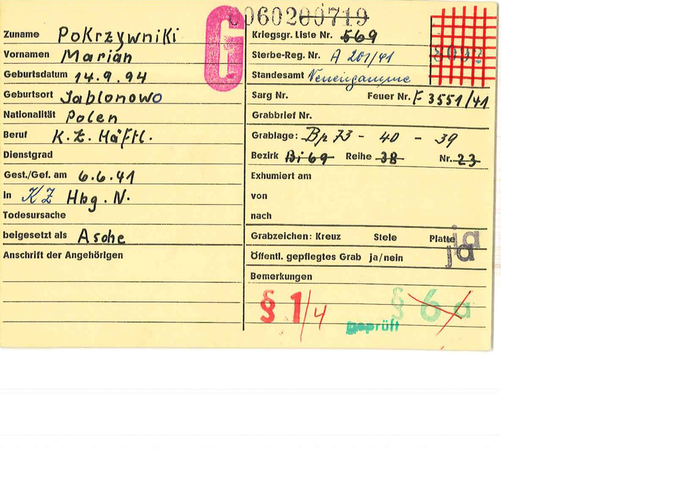 G
0060200719
Zuname Pokrzywniki
Vornamen Marian
Geburtsdatum 14.9.94
Geburtsort Jablonowo
Nationalität Polen
Beruf K.Z. Häftl.
Dienstgrad
Gest./Gef. am 6.6.41
in KZ Hbg. N.
Todesursache
beigesetzt als Asche
Anschrift der Angehörigen
Kriegsgr. Liste Nr. 569
Sterbe-Reg. Nr. A 201/41
Standesamt Neuengamme
Sarg Nr. Feuer Nr. F 3551/41
Grabbrief Nr.
Grablage: Bp 73 - 40 - 39
Bezirk Bi 69 Reihe 38 Nr. 23
Exhumiert am
von
nach
Grabzeichen: Kreuz Stele Platte ja
Öffentl. gepflegtes Grab ja/nein ja
Bemerkungen
§ 1/4 § 6 a
geprüft